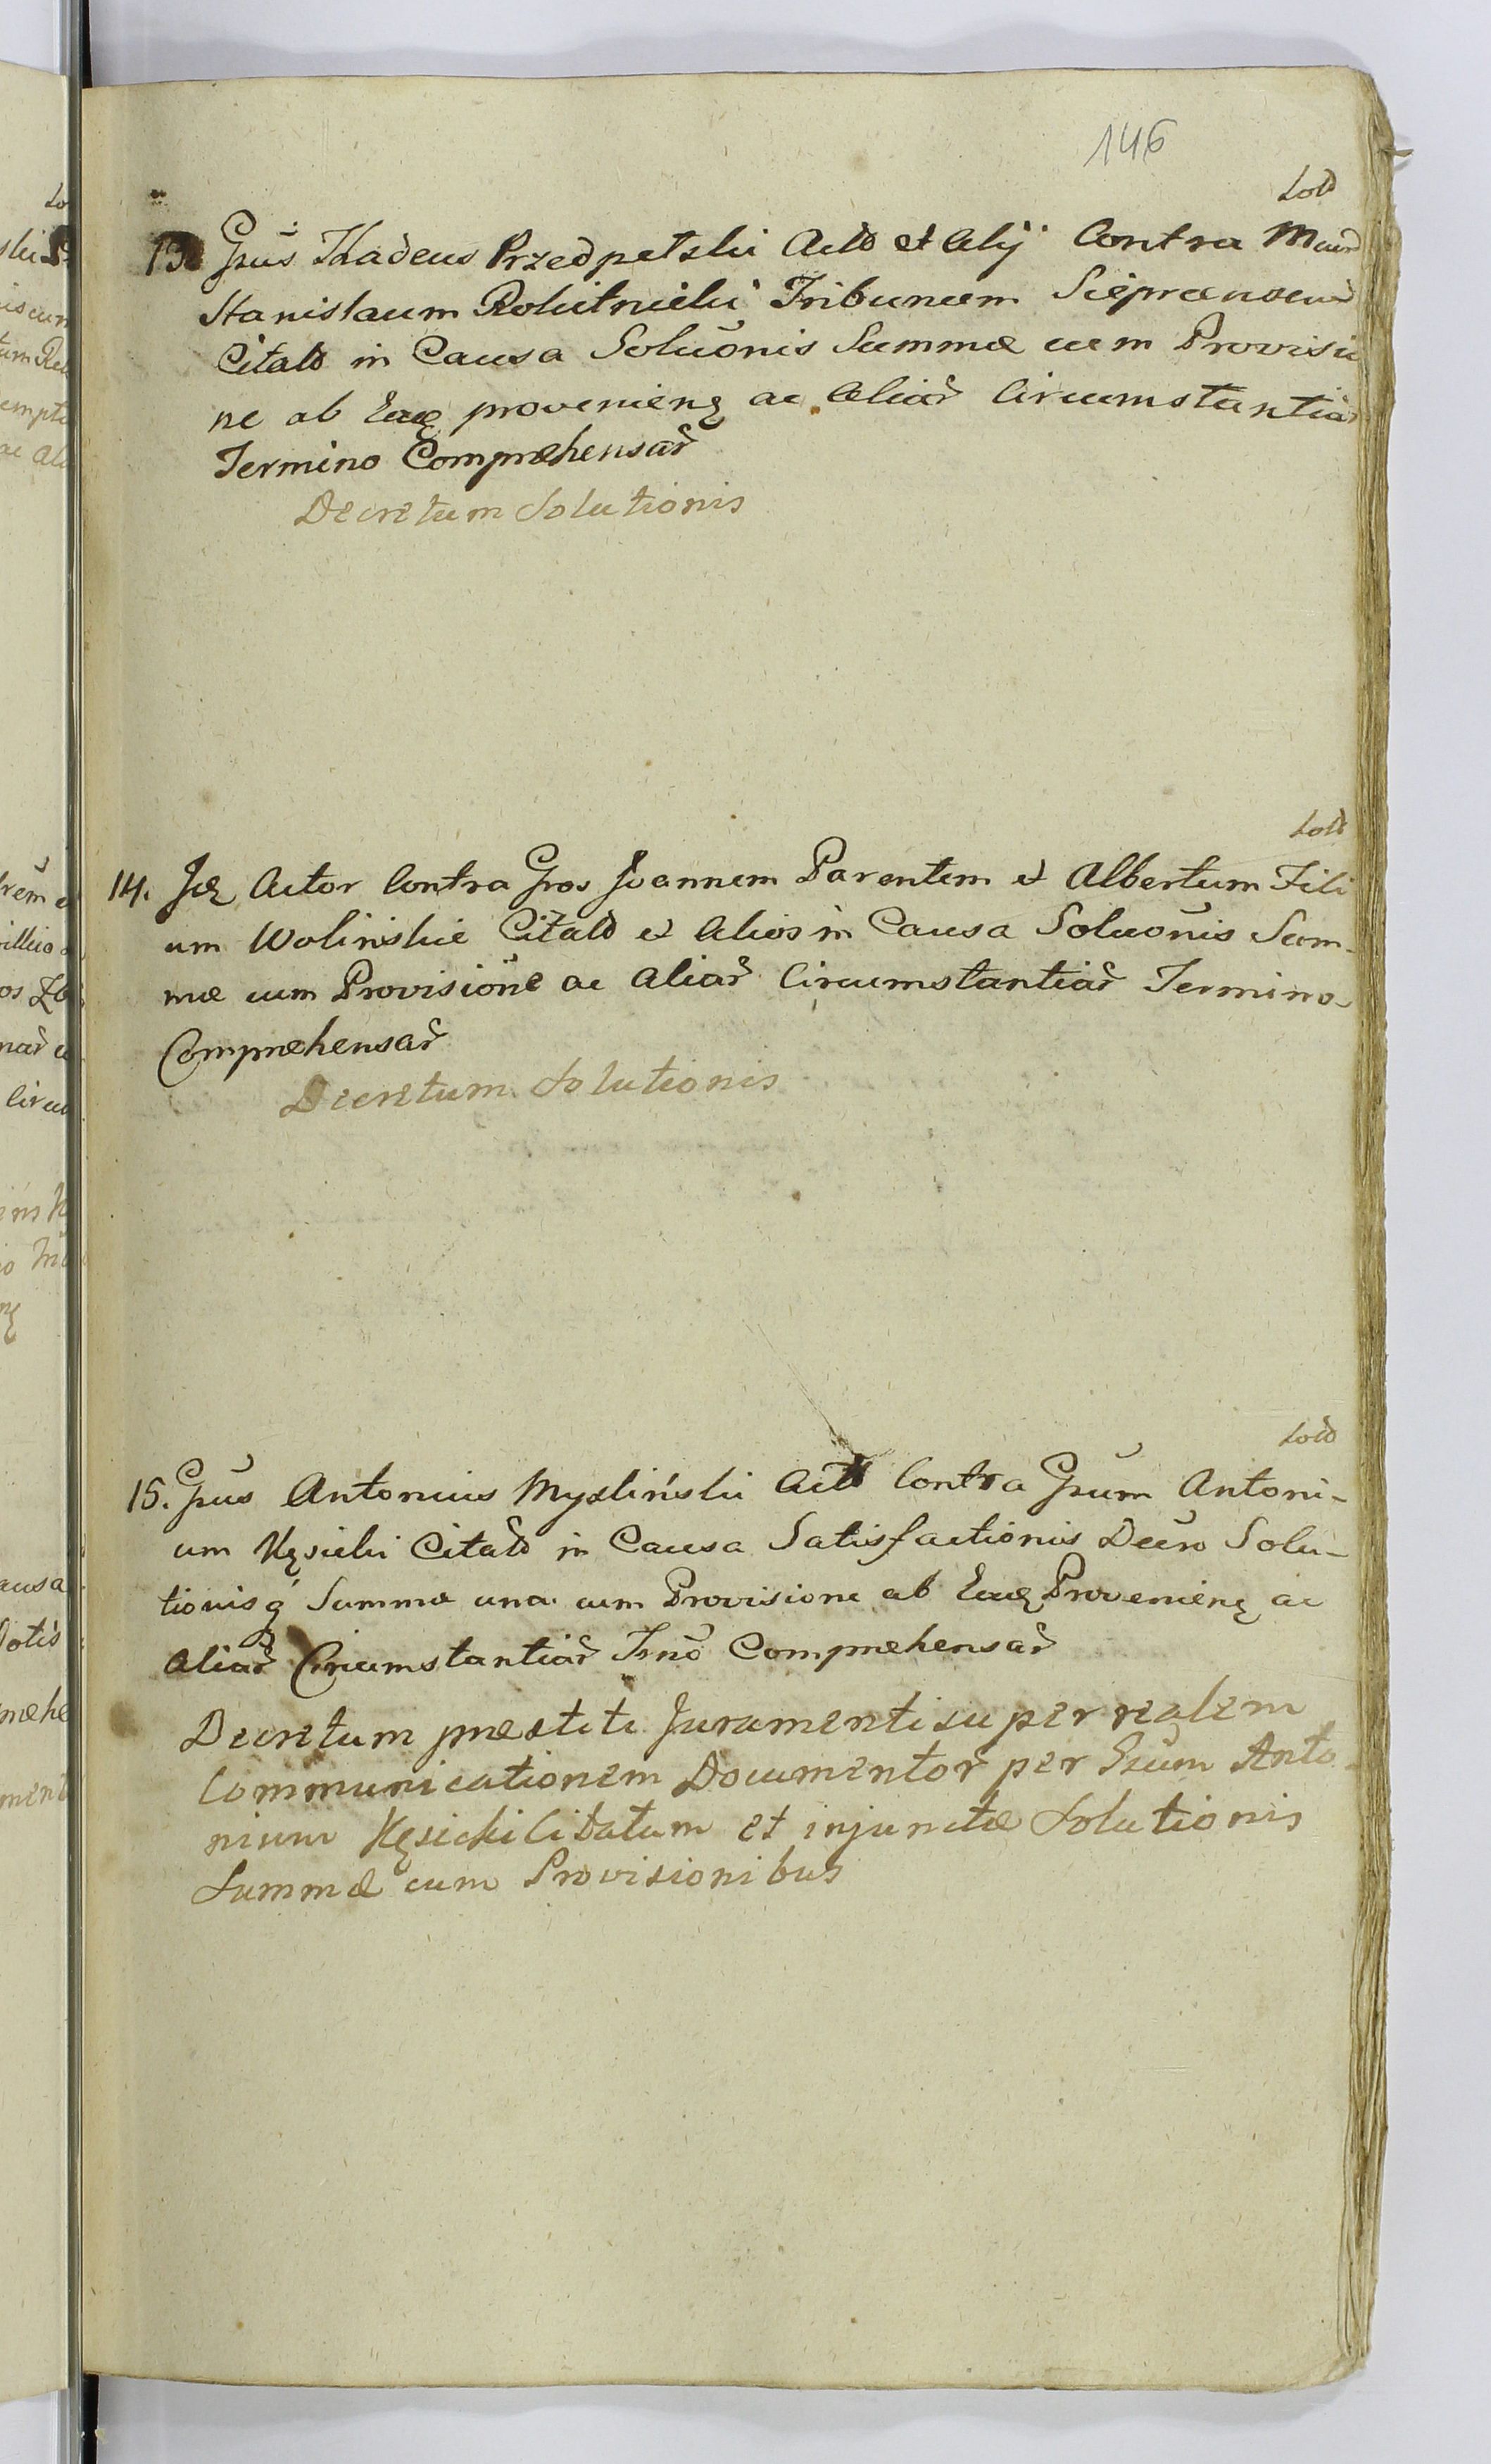 146
Lol
13. Gsus Thadeus Przedpełski Actd et Alij Contra Mcum
Stanislaum Rokitnicki Tribunum Sieprcensem
Citatd in Causa Soluonis Summæ cum Provisio
ne ab Eaq provenienę ac Aliar Circumstantiar
Termino Comprehensar
Decretum Solutionis
Lold
14. Idę Actor Contra Gsos Joannem Parentem et Albertum Fili
um Wolinskie Citatd et Alios in Causa Soluonis Sum-
mæ cum Provisione ac Aliar Circumstantiar Termino
Comprehensar
Decretum Solutionis
Lold
15. Gsus Antonius Mysliński Actd Contra Gsum Antoni-
um Kęsicki Citatd in Causa Satisfactionis Decro Solu-
tionisq Summæ una cum Provisione ab Eaq Provenienę ac
Aliar Circumstantiar Trno Comprehensar
Decretum præstiti Juramenti super realem
Communicationem Documentor per Gsum Anto-
nium Kęsicki Citatum et injunctæ Solutionis
Summæ cum Provisionibus